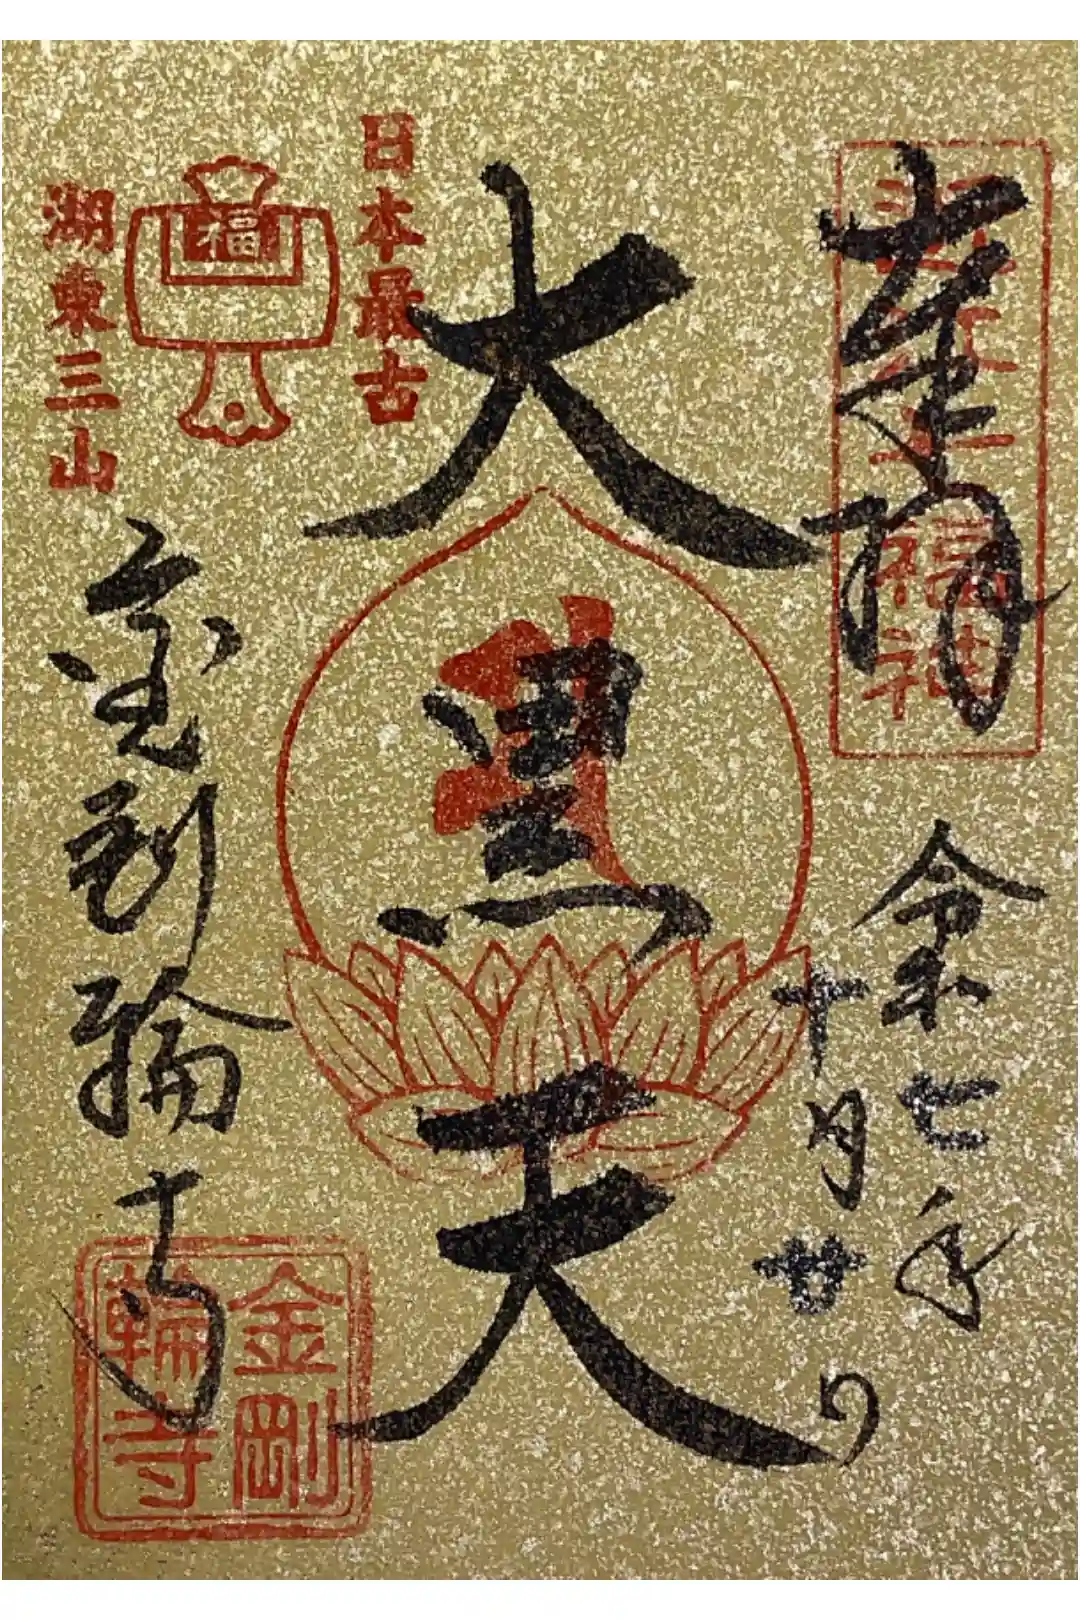 奉拝
近江七福神
令和七年
十月廿日
大黒天
日本最古
福
湖東三山
金剛輪寺
金剛
輪寺